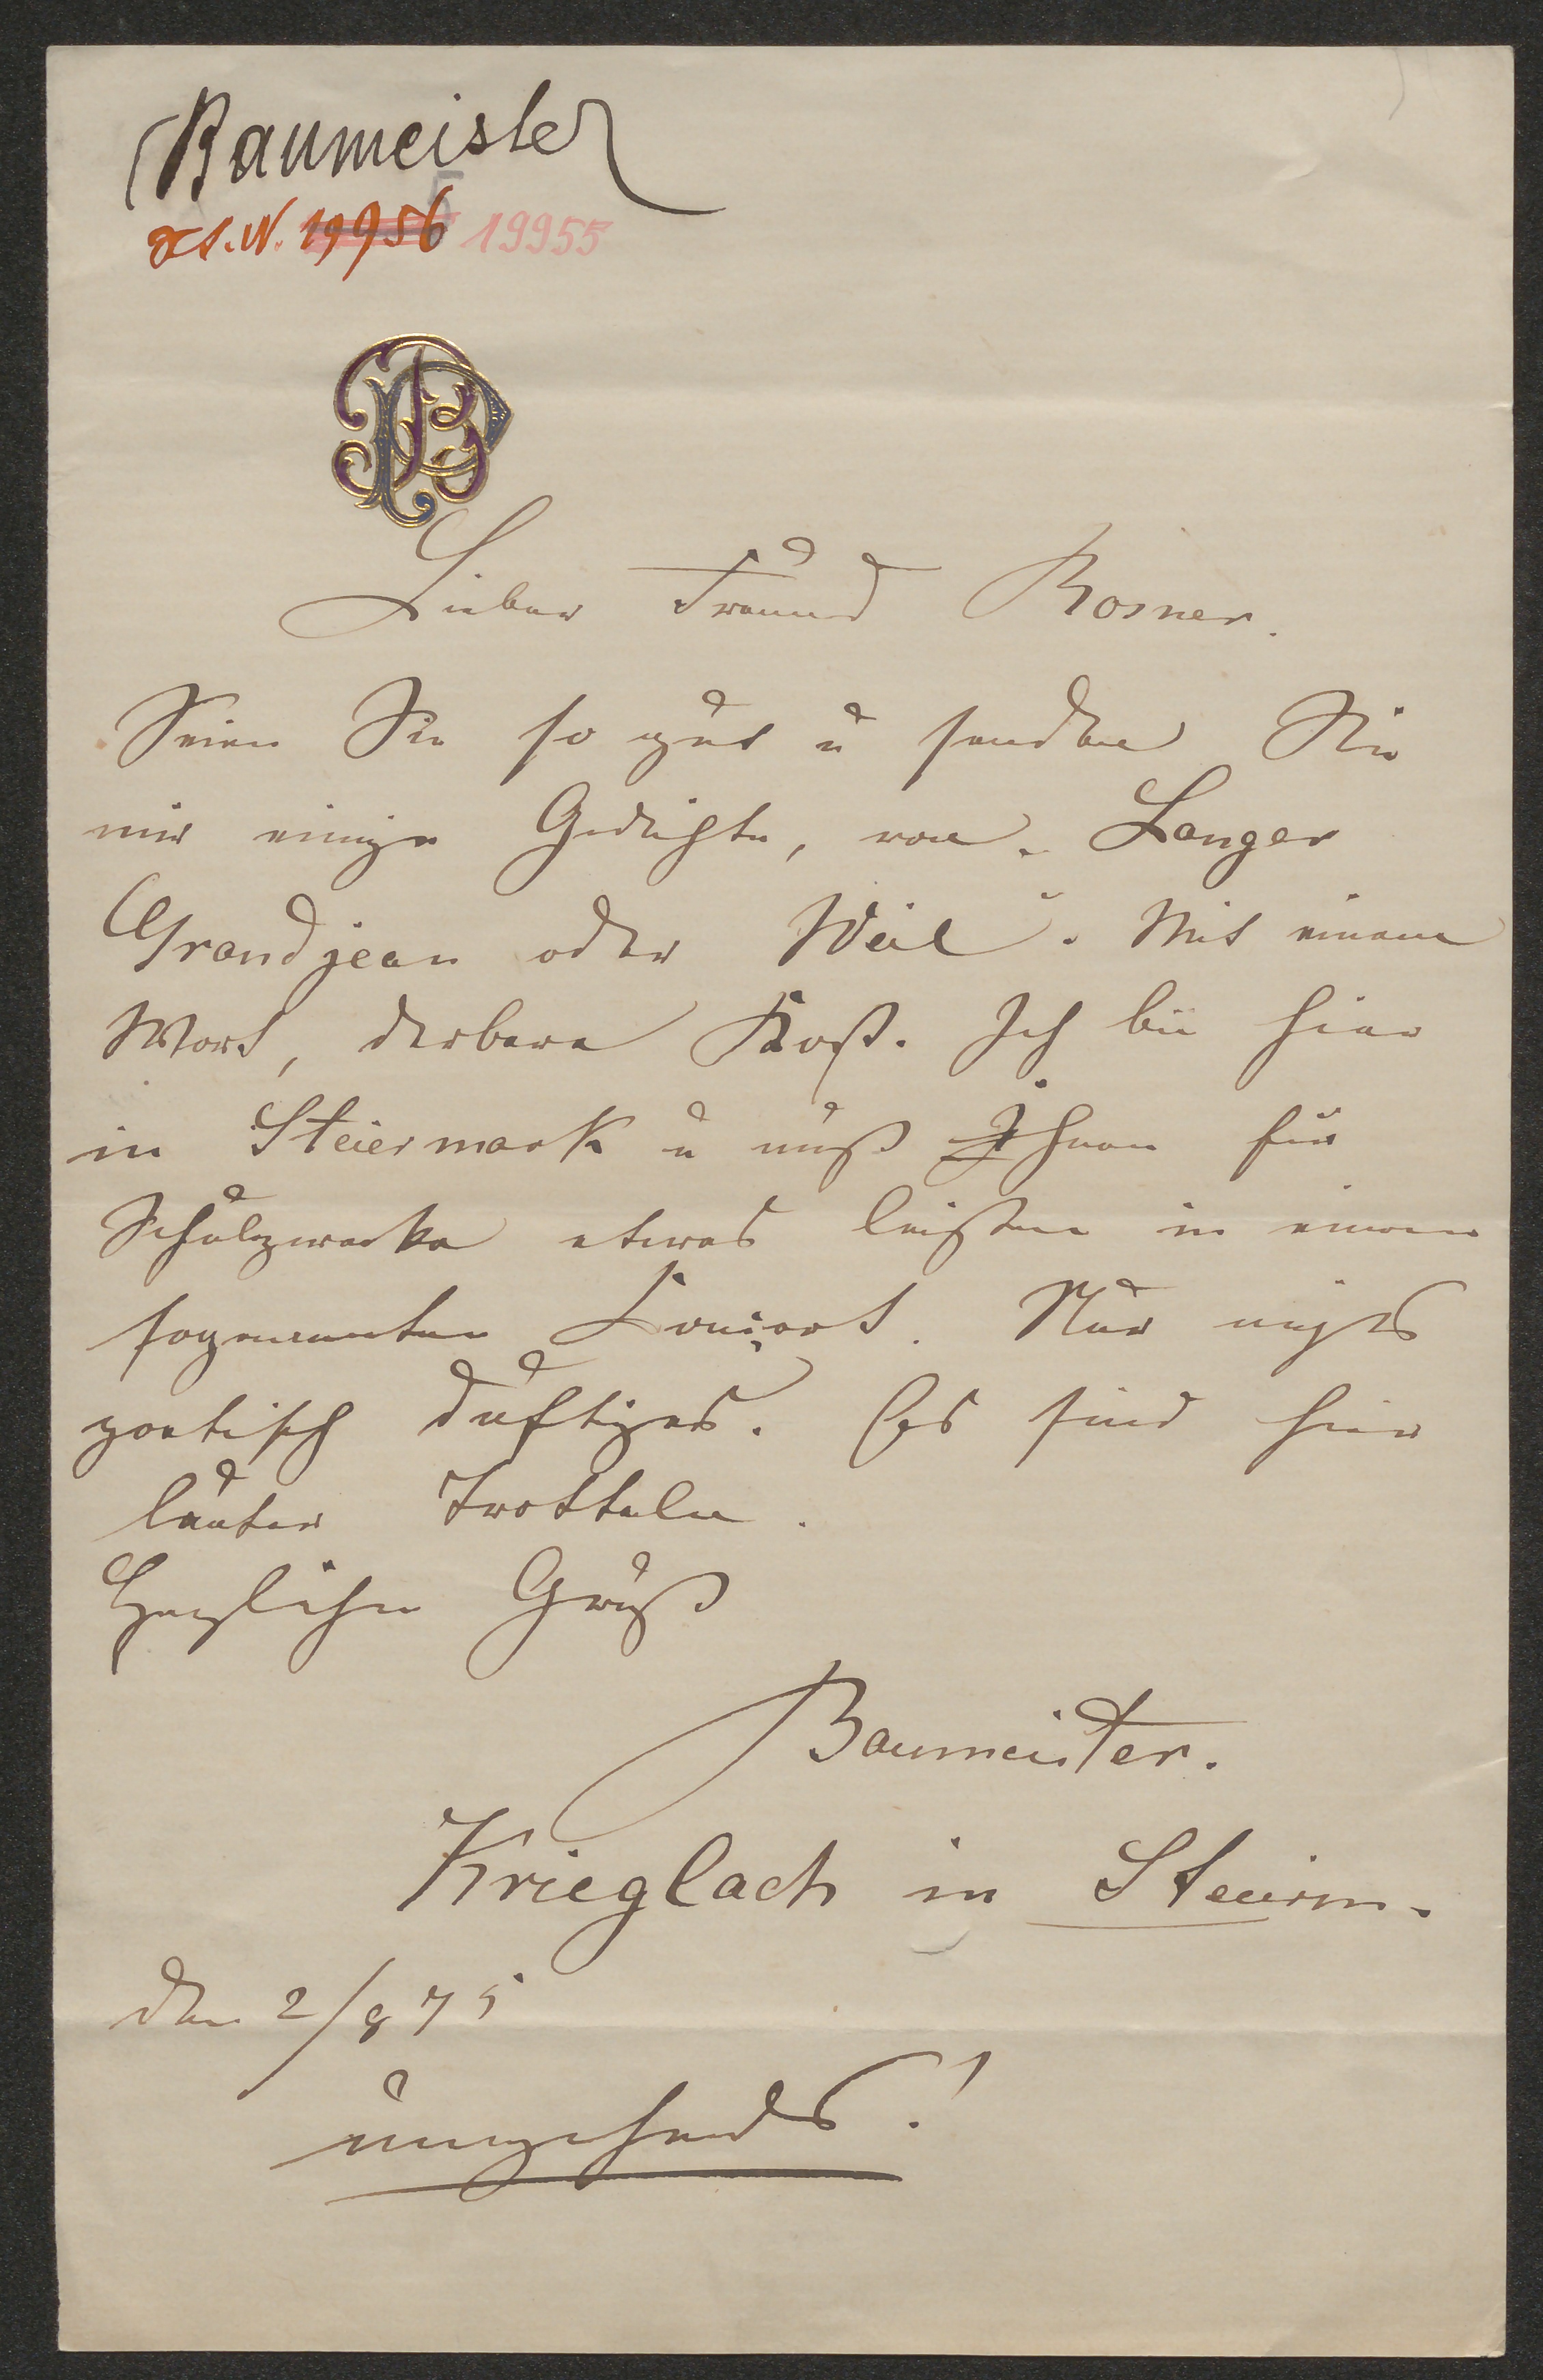 Baumeister
I.N. 19956 19955
5
PB
Lieber Freund Rosner.
Seien Sie so gut u senden Sie
mir einige Gedichte, von. Langer
Grandjean oder Weil. Mit einem
Wort, derbere Kost. Ich bin hier
in Steiermark u muß Ihnen für
Schulzwecke etwas leisten in einem
sogenannten Concert. Nur nichts
poetisch duftiges. Es sind hier
lauter Trotteln.
Herzlichen Gruß
Baumeister.
Krieglach in Steierm.
den 2/8 75
umgehends!